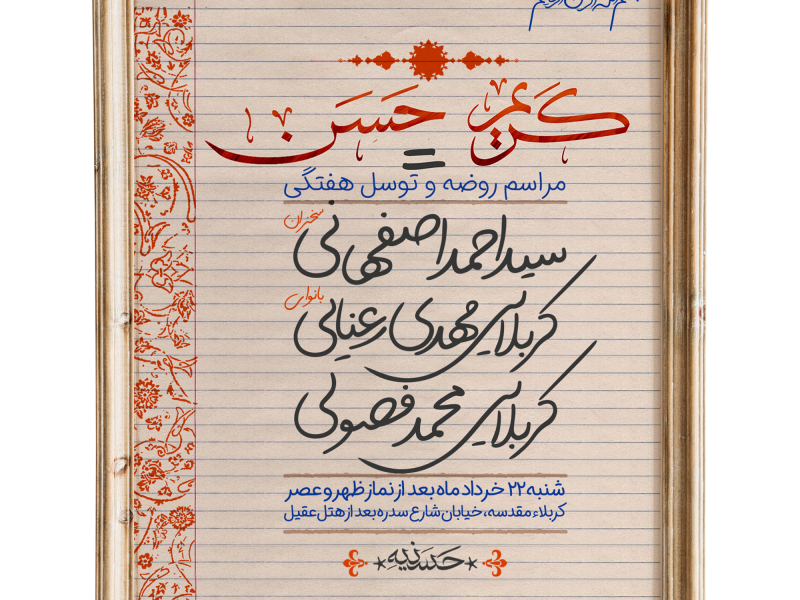 کریم حَسَن
مراسم روضه و توسل هفتگی
سخنران
سید احمد اصفهانی
بانوای
کربلایی مهدی رعنایی
کربلایی محمد فصولی
شنبه ۲۲ خرداد ماه بعد از نماز ظهر و عصر
کربلاء مقدسه، خیابان شارع سدره بعد از هتل عقیل
حَسَنیه